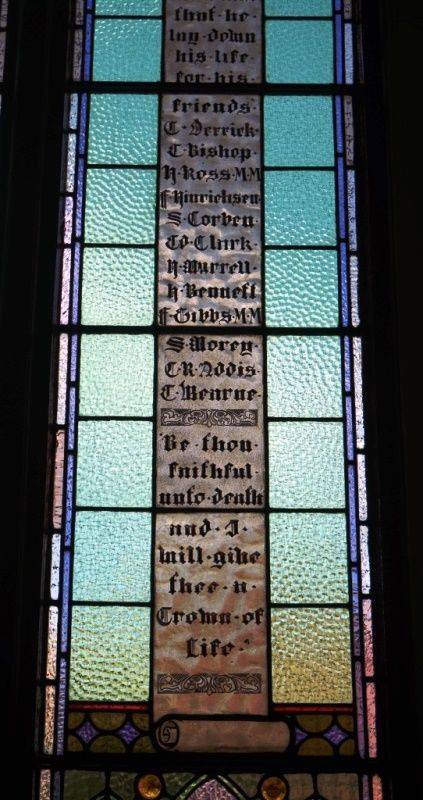 that he
lay down
his life
for his
friends.
C·Derrick·
C·Bishop·
H·Ross·M·M
ff·Hinrichsen
S·Corben
Ed·Clark·
H·Murrell·
H·Bennett
ff·Gibbs·M·M
S·Morey·
C·R·Addis·
C·Wearne·
Be·thou·
faithful·
unto·death
and·I·
will·give
thee·a·
Crown·of
Life·